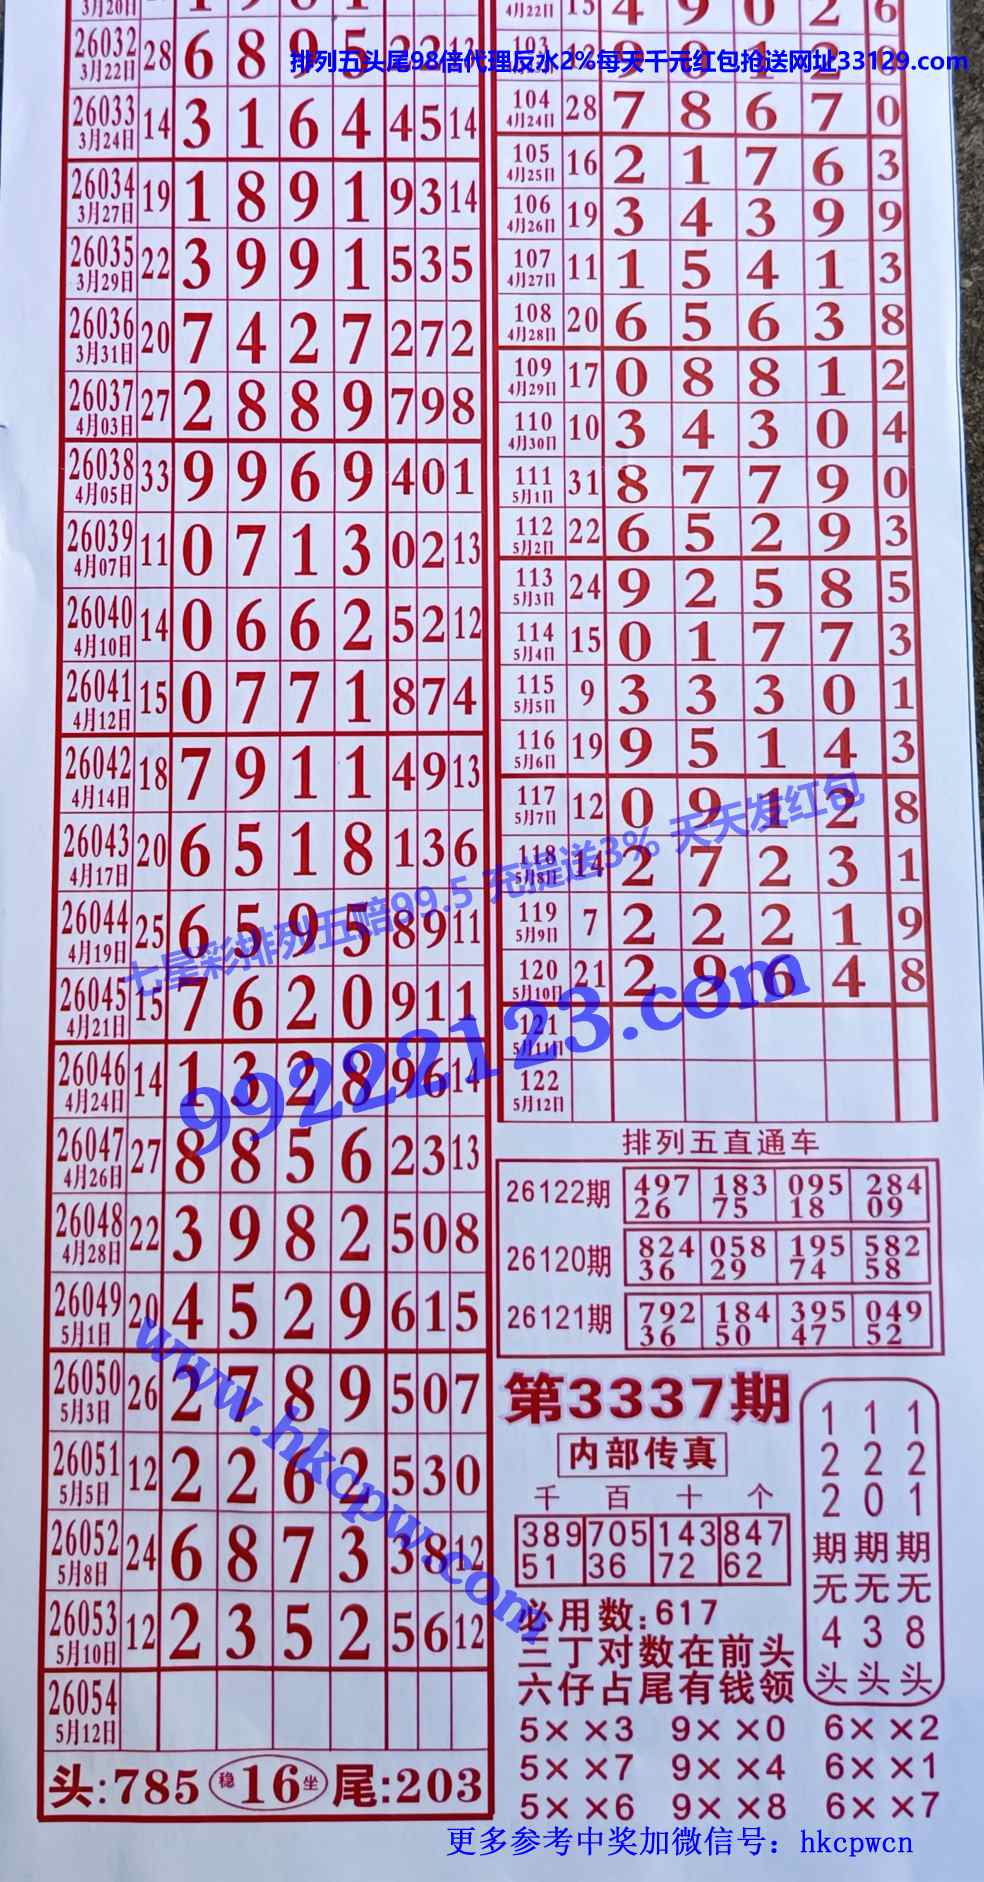 排列五头尾98倍代理反水2%每天千元红包抢送网址33129.com
3月20日
26032 3月22日 28 6 8 9 5 2 2 12
26033 3月24日 14 3 1 6 4 4 5 14
26034 3月27日 19 1 8 9 1 9 3 14
26035 3月29日 22 3 9 9 1 5 3 5
26036 3月31日 20 7 4 2 7 2 7 2
26037 4月03日 27 2 8 8 9 7 9 8
26038 4月05日 33 9 9 6 9 4 0 1
26039 4月07日 11 0 7 1 3 0 2 13
26040 4月10日 14 0 6 6 2 5 2 12
26041 4月12日 15 0 7 7 1 8 7 4
26042 4月14日 18 7 9 1 1 4 9 13
26043 4月17日 20 6 5 1 8 1 3 6
26044 4月19日 25 6 5 9 5 8 9 11
26045 4月21日 15 7 6 2 0 9 1 1
26046 4月24日 14 1 3 2 8 9 6 14
26047 4月26日 27 8 8 5 6 2 3 13
26048 4月28日 22 3 9 8 2 5 0 8
26049 5月1日 20 4 5 2 9 6 1 5
26050 5月3日 26 2 7 8 9 5 0 7
26051 5月5日 12 2 2 6 2 5 3 0
26052 5月8日 24 6 8 7 3 3 8 12
26053 5月10日 12 2 3 5 2 5 6 12
26054 5月12日
头:785 稳 16 坐 尾:203
4月22日 15 4 9 0 2 6
103
104 4月24日 28 7 8 6 7 0
105 4月25日 16 2 1 7 6 3
106 4月26日 19 3 4 3 9 9
107 4月27日 11 1 5 4 1 3
108 4月28日 20 6 5 6 3 8
109 4月29日 17 0 8 8 1 2
110 4月30日 10 3 4 3 0 4
111 5月1日 31 8 7 7 9 0
112 5月2日 22 6 5 2 9 3
113 5月3日 24 9 2 5 8 5
114 5月4日 15 0 1 7 7 3
115 5月5日 9 3 3 3 0 1
116 5月6日 19 9 5 1 4 3
117 5月7日 12 0 9 1 2 8
118 5月8日 14 2 7 2 3 1
119 5月9日 7 2 2 2 1 9
120 5月10日 21 2 9 6 4 8
121 5月11日
122 5月12日
七星彩排列五赔99.5 充提送3% 天天发红包
99222123.com
www.hkcpw.com
排列五直通车
26122期 497 183 095 284
26 75 18 09
26120期 824 058 195 582
36 29 74 58
26121期 792 184 395 049
36 50 47 52
第3337期
内部传真
千 百 十 个
389 705 143 847
51 36 72 62
必用数:617
三丁对数在前头
六仔占尾有钱领
1 1 1
2 2 2
2 0 1
期 期 期
无 无 无
4 3 8
头 头 头
5××3 9××0 6××2
5××7 9××4 6××1
5××6 9××8 6××7
更多参考中奖加微信号：hkcpwcn